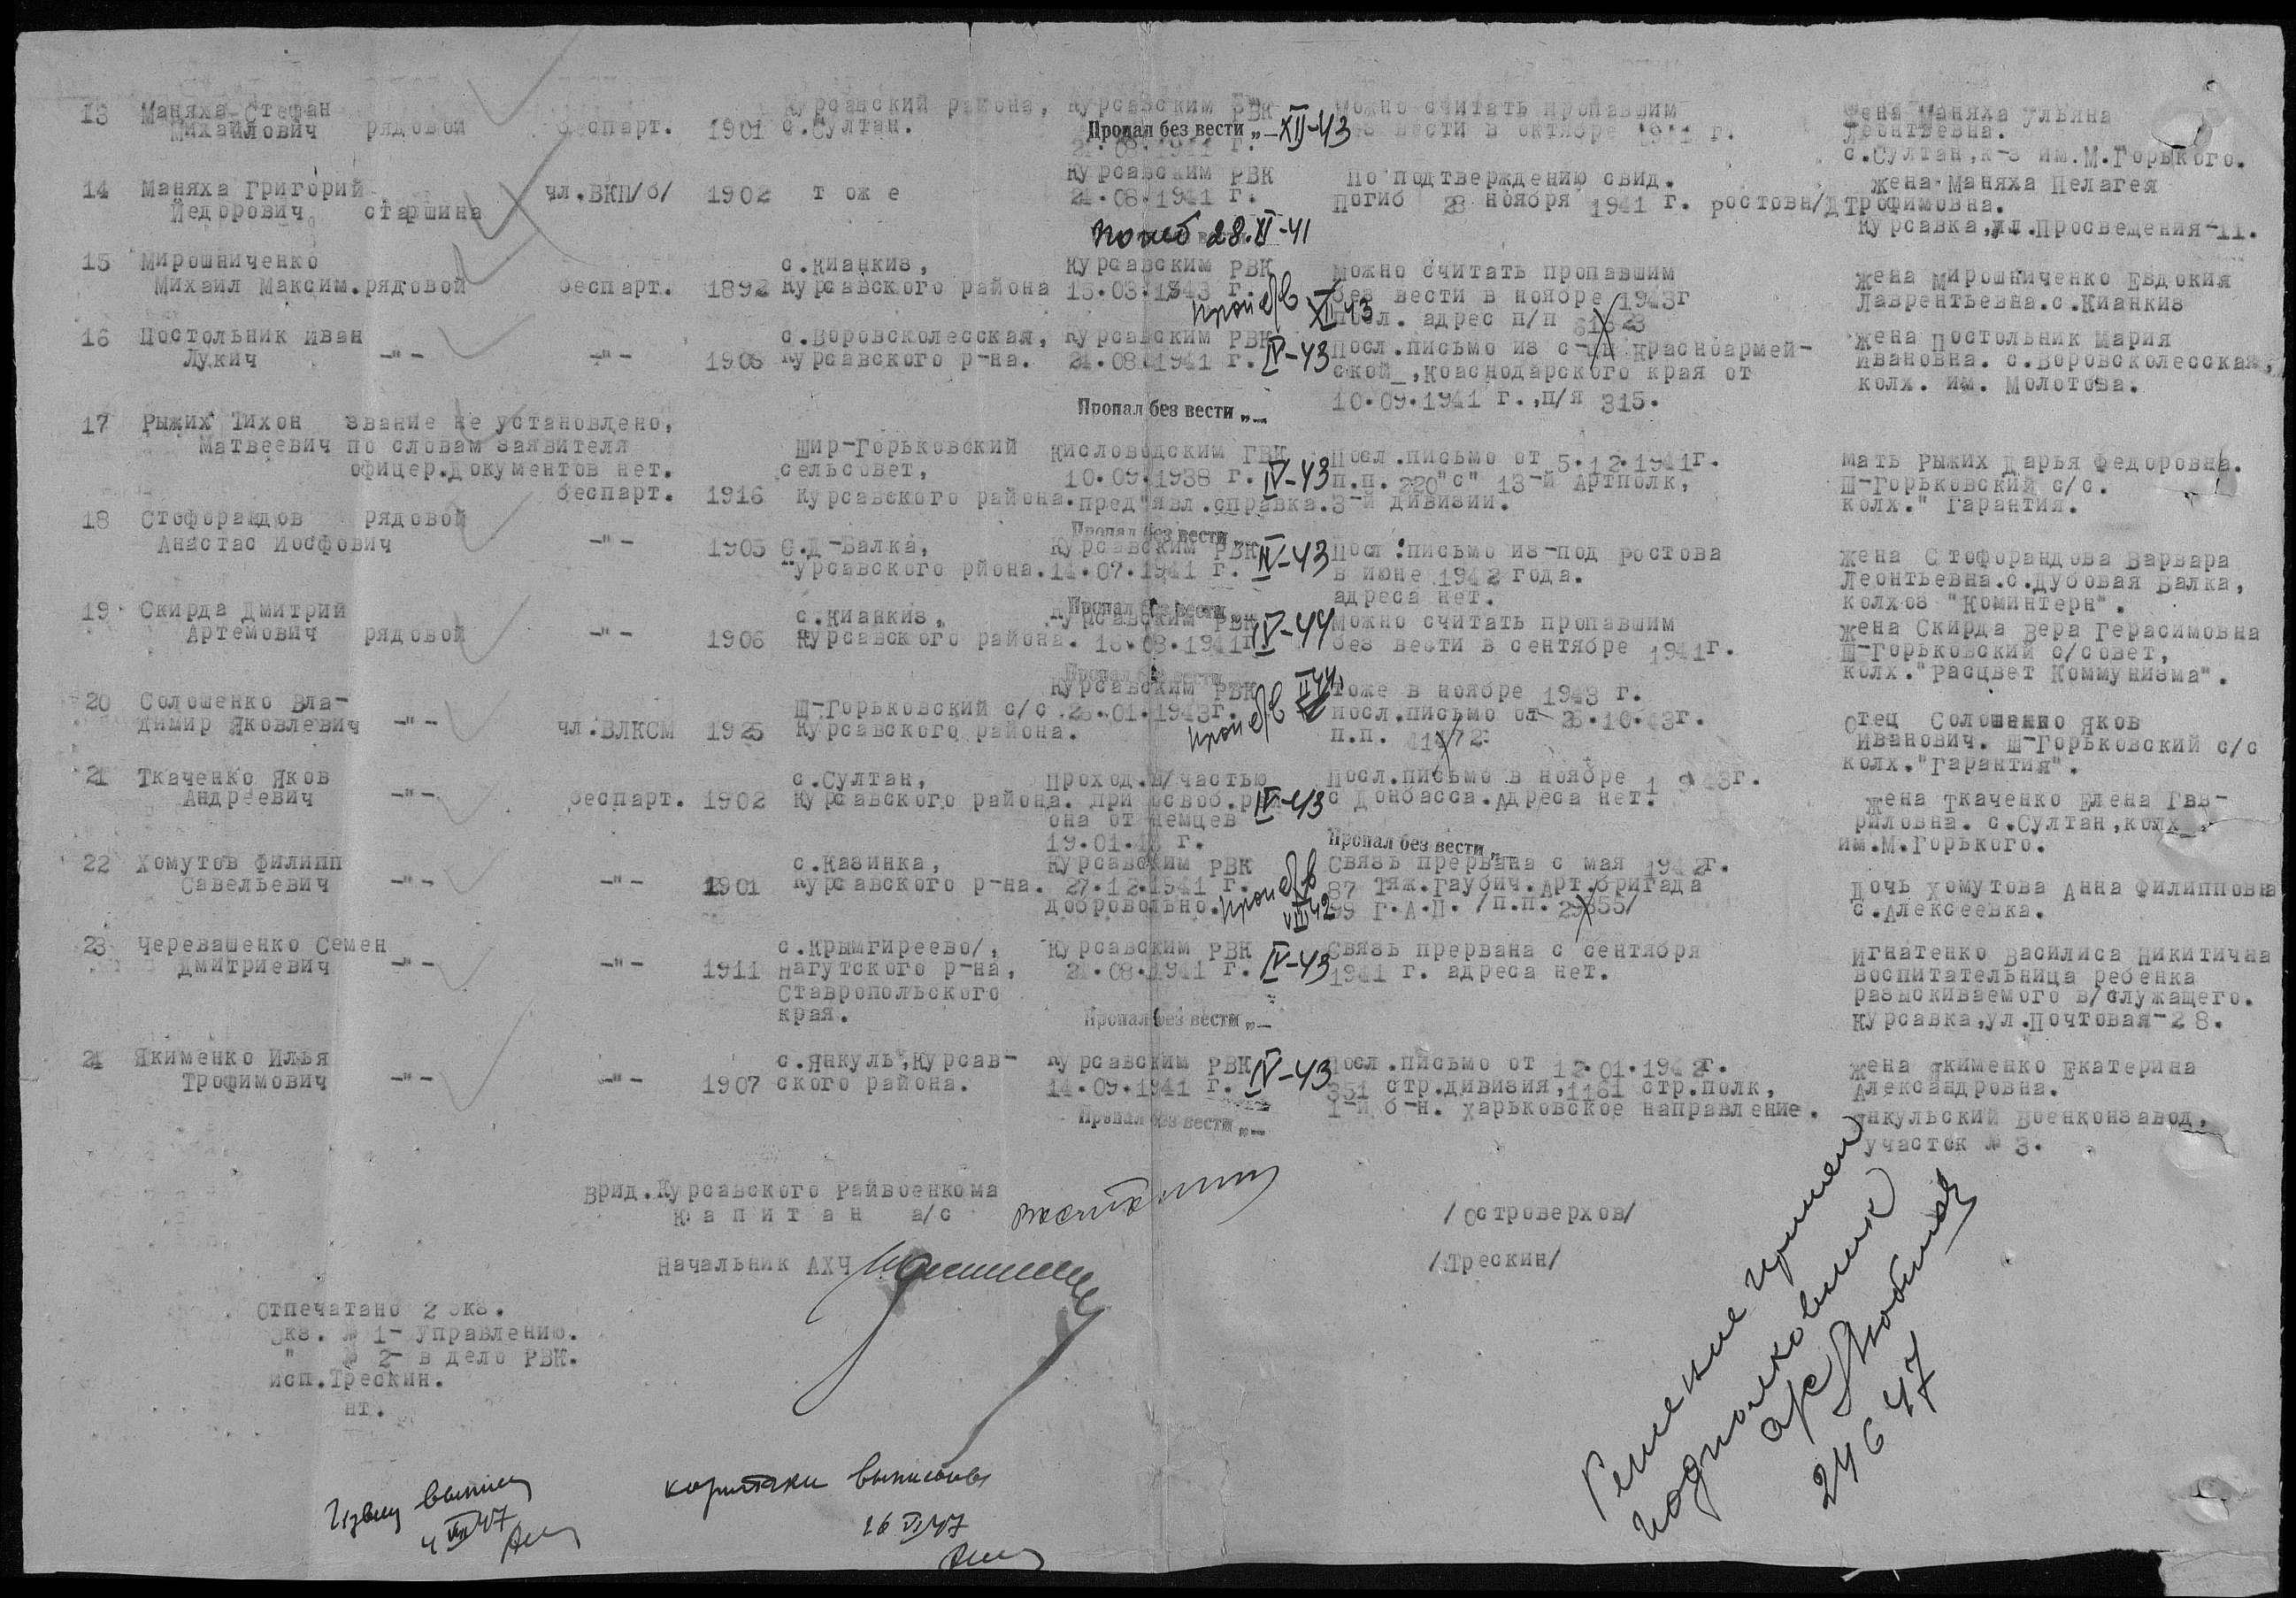 13 Маняха Стефан
Михайлович рядовой беспарт. 1901 с.Султан.
Курсавский района, Курсавским РВК
Пропал без вести „— XII-43
21.08.1941 г.
Можно считать пропавшим
без вести в октябре 1941 г.
жена Маняха Ульяна
Леонтьевна.
с.Султан,к-з им.М.Горького.
14 Маняха Григорий
Йедорович старшина чл.ВКП/б/ 1902 т оже
Курсавским РВК
21.08.1941 г.
погиб 28.XI-41
По подтверждению свид.
Погиб 28 ноября 1941 г. Ростовн/Д
жена Маняха Пелагея
Трофимовна.
Курсавка,ул.Просвещения-11.
15 Мирошниченко
Михаил Максим.рядовой беспарт. 1892
с.Кианкиз,
Курсавского района
Курсавским РВК
15.03.1943 г.
проп б/в XII 43
Можно считать пропавшим
без вести в ноябре 1943г
посл. адрес п/п
жена Мирошниченко Евдокия
Лаврентьевна.с.Кианкиз
16 Постольник Иван
Лукич -"- -"- 1908
с.Воровсколесская,
Курсавского р-на.
Курсавским РВК
21.08.1941 г. IV-43
Пропал без вести „—
Посл.письмо из с-цы Красноармей-
ской_,Краснодарского края от
10.09.1941 г.,п/я 315.
жена Постольник Мария
Ивановна. с.Воровсколесская,
колх. им. Молотова.
17 Рыжих Тихон звание не установлено,
Матвеевич по словам заявителя
офицер.Документов нет.
беспарт. 1916
Шир-Горьковский
сельсовет,
Курсавского района.
Кисловодским ГВК
10.09.1938 г. IV-43
пред"явл.справка.
Пропал без вести
Посл.письмо от 5.12.1941г.
п.п. 220"с" 13-й Артполк,
3-й дивизии.
мать Рыжих Дарья Федоровна.
Ш-Горьковский с/с.
колх." Гарантия.
18 Стофорандов рядовой
Анастас Иосфович -"- 1905
С.Д-Балка,
Курсавского рйона.
Курсавским РВК
14.07.1941 г. IV-43
Пропал без вести
Посл.письмо из-под Ростова
в июне 1942 года.
адреса нет.
жена Стофорандова Варвара
Леонтьевна.с.Дубовая Балка,
колхоз "Коминтерн".
19 Скирда Дмитрий
Артемович рядовой -"- 1906
с.Кианкиз,
Курсавского района.
Курсавским РВК
16.08.1941г IV-44
Пропал без вести
Можно считать пропавшим
без вести в сентябре 1941г.
жена Скирда Вера Герасимовна
Ш-Горьковский с/совет,
колх."Расцвет Коммунизма".
20 Солошенко Вла-
димир Яковлевич -"- чл.ВЛКСМ 1925
Ш-Горьковский с/с
Курсавского района.
Курсавским РВК
25.01.1943г.
проп б/в
тоже в ноябре 1943 г.
посл.письмо от 25.10.43г.
п.п.
отец Солошенко Яков
Иванович. Ш-Горьковский с/с
колх."Гарантия".
21 Ткаченко Яков
Андреевич -"- беспарт. 1902
с.Султан,
Курсавского района.
Проход.в/частью
при освоб.рай
она от немцев
19.01.43 г.
IV-43
Посл.письмо в ноябре 1943г.
с Донбасса.Адреса нет.
Пропал без вести „
жена Ткаченко Елена Гав-
риловна. с.Султан,колх
им.М.Горького.
22 Хомутов Филипп
Савельевич -"- -"- 1901
с.Казинка,
Курсавского р-на.
Курсавским РВК
27.12.1941 г.
добровольно.
проп б/в
VIII 42
Связь прервана с мая 1942г.
87 Тяж.Гаубич.Арт.бригада
99 Г.А.П. /п.п. 29855/
Дочь Хомутова Анна Филипповна
с.Алексеевка.
23 Черевашенко Семен
Дмитриевич -"- -"- 1911
с.Крымгиреево/,
Нагутского р-на,
Ставропольского
края.
Курсавским РВК
21.08.1941 г. IV-43
Пропал без вести „—
Связь прервана с сентября
1941 г. адреса нет.
Игнатенко Василиса Никитична
воспитательница ребенка
разыскиваемого в/служащего.
Курсавка,ул.Почтовая-28.
24 Якименко Илья
Трофимович -"- -"- 1907
с.Янкуль,Курсав-
ского района.
Курсавским РВК
14.09.1941 г. IV-43
Пропал без вести „—
Посл.письмо от 12.01.1942г.
351 стр.дивизия,1161 стр.полк,
1-й б-н. Харьковское направление.
жена Якименко Екатерина
Александровна.
Янкульский Военконзавод,
участок № 3.
Врид.Курсавского Райвоенкома
К а п и т а н а/с /Островерхов/
Начальник АХЧ /Трескин/
Отпечатано 2 экз.
Экз. № 1- Управлению.
" № 2- в дело РВК.
исп.Трескин.
нт.
Решение принял
подполковник
24 6 47
4 VII 47
карточки выписаны
26 VI 47